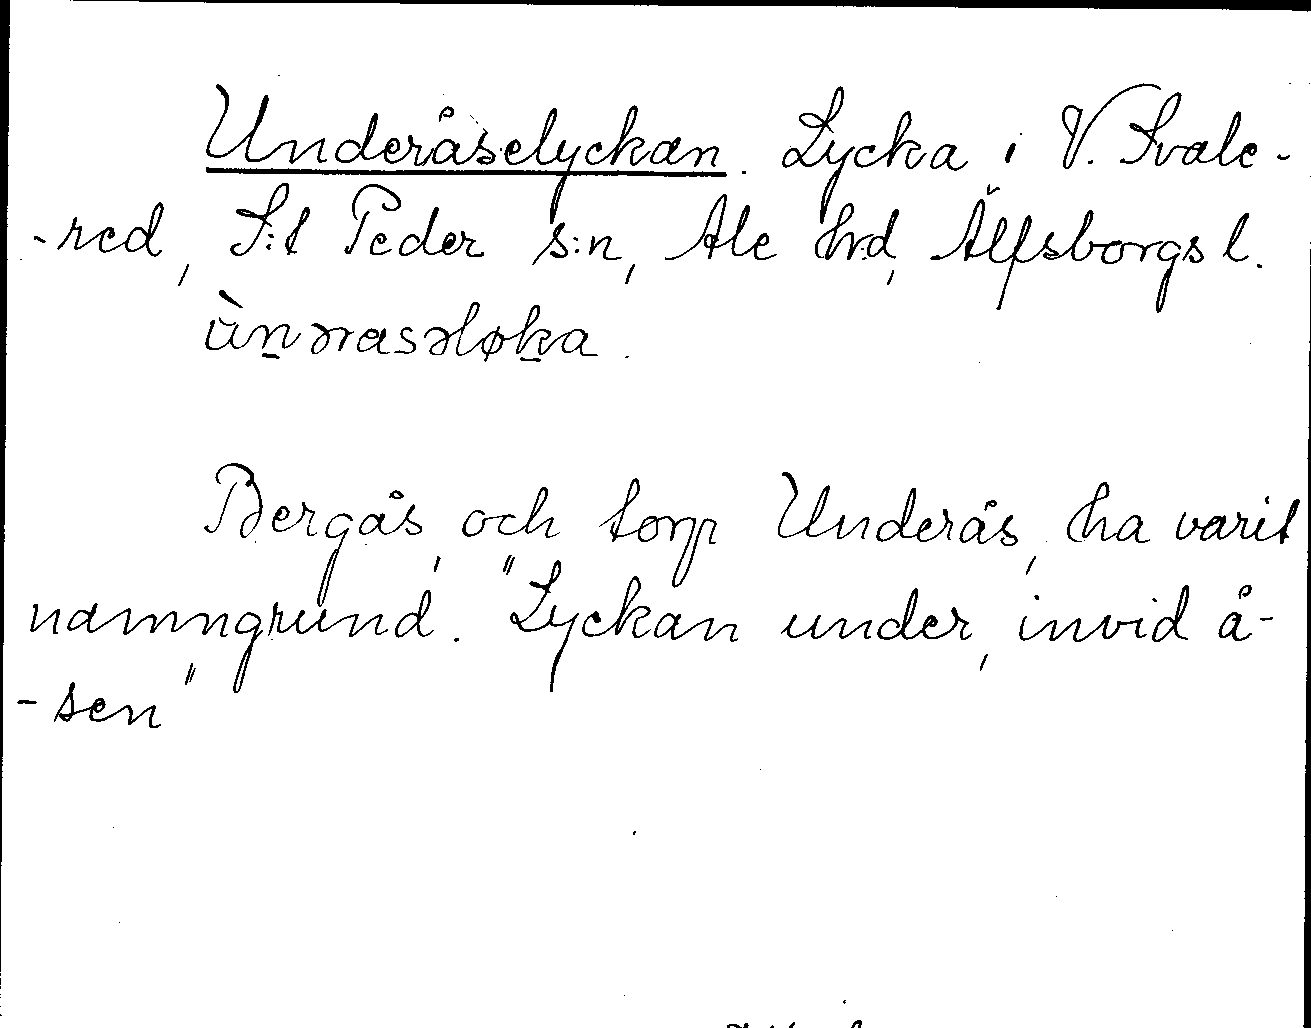 Underåselyckan. Lycka i V. Svale-
-red, S:t Peder s:n, Ale hrd, Älfsborgs l.
ùn̠ərasəløk̠a.
Bergås, och torp Underås, ha varit
namngrund. "Lyckan under, invid å-
-sen"